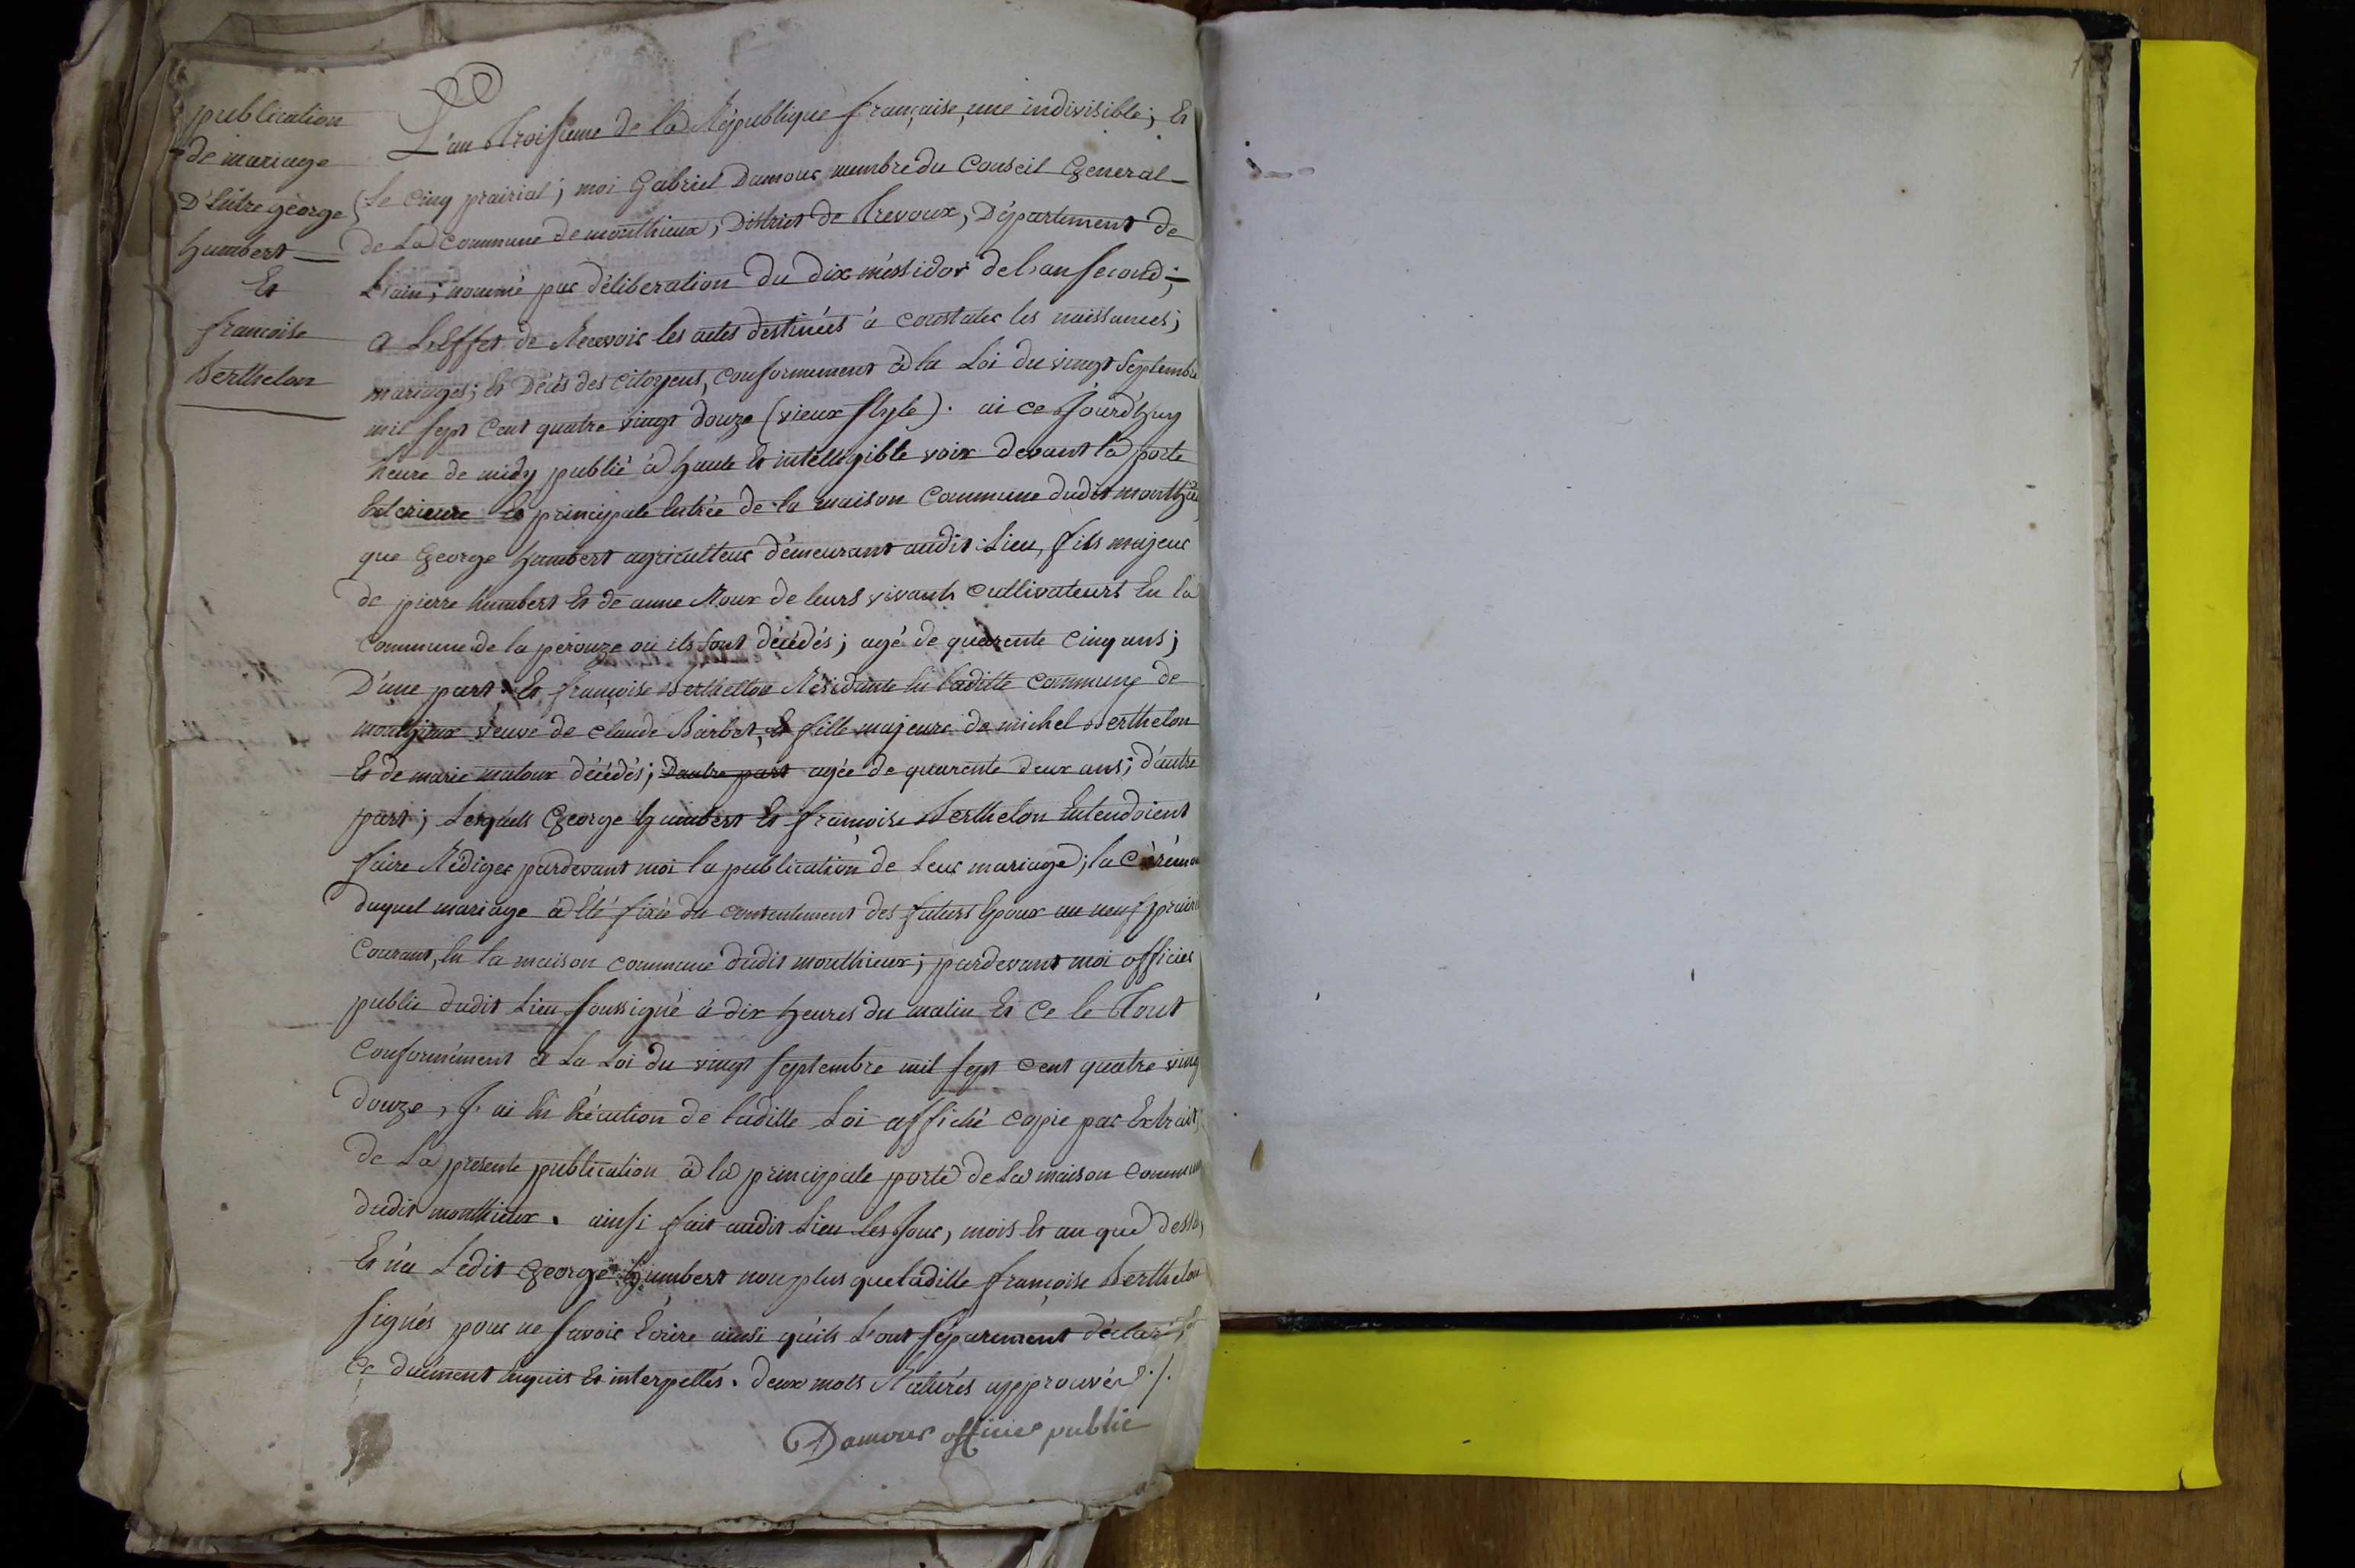 publication
de mariage
D'Entre george
humbert
Et
françoise
Berthelon
L'an Troisieme de la République française, une indivisible; Et
Le cinq prairial; moi Gabriel Damour membre du Conseil General
de La Commune de monthieux, District de Trevoux, Département de
L'ain; nommé par déliberation du dix messidor de l'an second;
a L'Effet de Recevoir les actes destinées à constater les naissances;
mariages; Et Décès des citoyens, conformement à la Loi du vingt Septembre
mil sept Cent quatre vingt douze (vieux style). ai ce Jourd'huy
heure de midy publié à haute Et intelligible voix devant la porte
Exterieure Et principale Entrée de la maison Commune dudit monthieu
que George humbert agriculteur demeurant audit Lieu, fils majeur
de pierre humbert Et de anne Roux de leurs vivants cultivateurs En la
Commune de la perouze ou ils sont décédés; agé de quarente cinq ans;
D'une part. Et françoise Berthelton Résidante En laditte commune de
monthieux veuve de claude Barbet, Et fille majeure de michel Berthelon
Et de marie matoux décédés; Dautre part agée de quarente deux ans; d'autre
part; Lesquels George humbert Et françoise Berthelon Entendoient
faire Rédiger pardevant moi la publication de Leur mariage; la Cérémo
duquel mariage à Eté fixée du consentement des futurs Epoux au neuf prairi
Courant, En la maison commune dudit monthieux; pardevant moi officier
public dudit Lieu soussigné à dix heures du matin Et Ce le Tout
Conformément à La Loi du vingt septembre mil sept cent quatre ving
douze, J'ai En Exécution de laditte Loi affiché copie par Extrait,
de La présente publication à la principale porte de La maison Commun
dudit monthieux. ainsi fait audit Lieu les Jour, mois Et an que dessu,
Et n'a Ledit George humbert non plus que laditte françoise Berthelon
signés pour ne savoir Ecrire ainsi qu'ils L'ont séparement déclaré,
Ce duement Enquis Et interpellés. deux mots Raturés approuvés ./.
Damour officier public